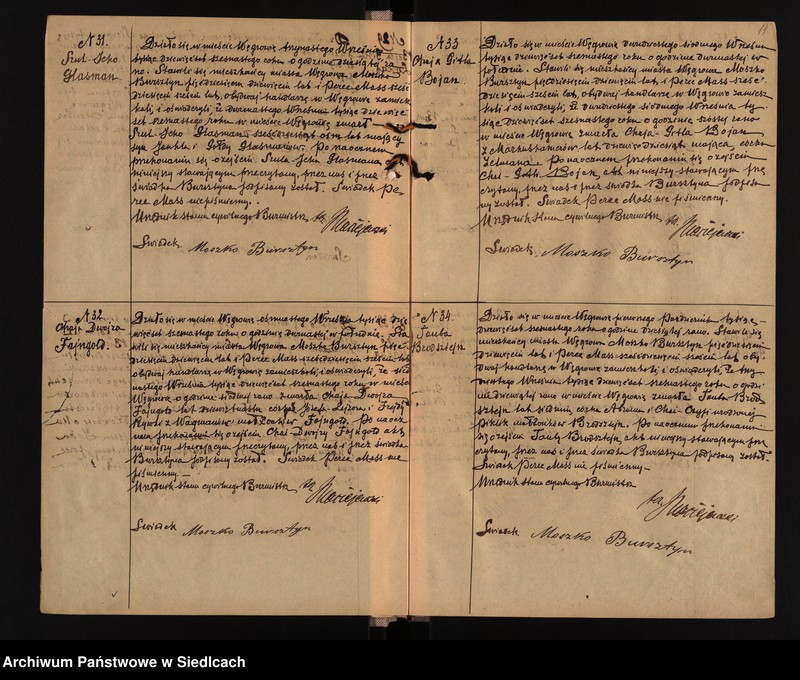 N 31.
Szul Icko
Glasman
Działo się w mieście Węgrowie trzynastego Września
tysiąc dziewięćset szesnastego roku o godzinie dziesiątej ra-
no. Stawili się mieszkańcy miasta Węgrowa Moszko
Bursztyn pięćdziesiąt dziewięć lat i Perec Mass sześć-
dziesiąt sześć lat, obydwaj handlarze w Węgrowie zamiesz-
kali, i oświadczyli, że dwunastego Września tysiąc dziewięć-
set szesnastego roku w mieście Węgrowie zmarł
Szul Icko Glasman sześćdziesiąt osm lat mający
syn Jankla i Gołdy Glasmanów. Po naocznem
przekonaniu się o zejściu Szula Icka Glasmana, akt
niniejszy stawającym przeczytany, przez nas i przez
świadka Bursztyna podpisany został. Świadek Pe-
rec Mass niepiśmienny.
Urzędnik stanu cywilnego Burmistrz
Maciejewski
Świadek Moszko Bursztyn
N 32
Chaja Dwojra
Fajngold.
Działo się w mieście Węgrowie osmnastego Września tysiąc dzie-
więćset szesnastego roku o godzinie dwunastej w południe. Sta-
wili się mieszkańcy miasta Węgrowa Moszko Bursztyn pięć-
dziesiąt dziewięć lat i Perec Mass sześćdziesiąt sześć lat
obydwaj handlarze w Węgrowie zamieszkali, i oświadczyli, że
Września tysiąc dziewięćset szesnastego roku w mieście
Węgrowie o godzinie siódmej rano zmarła Chaja Dwojra
Fajngold lat
Fajngold. Po naocz-
nem przekonaniu się o zejściu Chai-Dwojry Fajngold akt
niniejszy stawającym przeczytany, przez nas i przez świadka
Bursztyna podpisany został. Świadek Perec Mass nie
piśmienny.
Urzędnik stanu cywilnego Burmistrz
Maciejewski
Świadek Moszko Bursztyn
11
N 33
Chaja Gitla
Bojan
Działo się w mieście Węgrowie dwudziestego siódmego Września
tysiąc dziewięćset szesnastego roku o godzinie dwunastej w
południe. Stawili się mieszkańcy miasta Węgrowa Moszko
Bursztyn pięćdziesiąt dziewięć lat i Perec Mass sześć-
dziesiąt sześć lat, obydwaj handlarze w Węgrowie zamiesz-
kali i oświadczyli, że dwudziestego siódmego Września ty-
siąc dziewięćset szesnastego roku o godzinie szóstej rano
w mieście Węgrowie zmarła Chaja Gitla Bojan
lat mająca, córka
Po naocznem przekonaniu się o zejściu
Chai-Gitli Bojan, akt niniejszy stawającym prze-
czytany, przez nas i przez świadka Bursztyna podpisa-
ny został. Świadek Perec Mass nie piśmienny.
Urzędnik stanu cywilnego Burmistrz
Maciejewski
Świadek Moszko Bursztyn
N 34.
Tauba
Brodsztejn
Działo się w mieście Węgrowie pierwszego Października tysiąc-
dziewięćset szesnastego roku o godzinie dziesiątej rano. Stawili się
mieszkańcy miasta Węgrowa Moszko Bursztyn pięćdziesiąt
dziewięć lat i Perec Mass sześćdziesiąt sześć lat oby-
dwaj handlarze w Węgrowie zamieszkali i oświadczyli, że
Września tysiąc dziewięćset szesnastego roku o godzi-
nie dziewiątej rano w mieście Węgrowie zmarła Tauba Brod-
sztejn lat siedm, córka
Po naocznem przekonaniu
się o zejściu Tauby Brodsztejn akt niniejszy stawającym prze-
czytany, przez nas i przez świadka Bursztyna podpisany został.
Świadek Perec Mass nie piśmienny.
Urzędnik stanu cywilnego Burmistrz
Maciejewski
Świadek Moszko Bursztyn
Archiwum Państwowe w Siedlcach